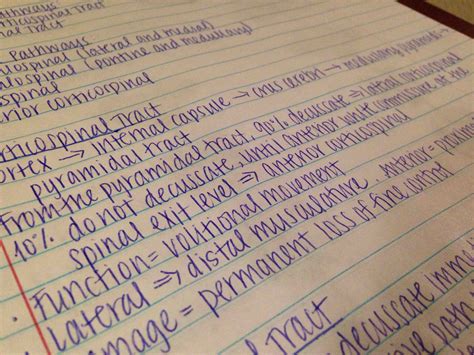 Pathways
corticospinal tract
Tract
Pathways:
ulospinal (lateral and medial)
ulospinal (pontine and medullary)
ospinal
erior corticospinal
rticospinal Tract
ortex → internal capsule → crus cerebri → medullary pyramids →
pyramidal tract
From the pyramidal tract 90% decussate ⇒ lateral corticospinal
10% do not decussate until anterior white commissure at
spinal exit level ⇒ anterior corticospinal
• Function = volitional movement
Lateral ⇒ distal musculature anterior = 
amage = permanent loss of fine control
Tract
decussate